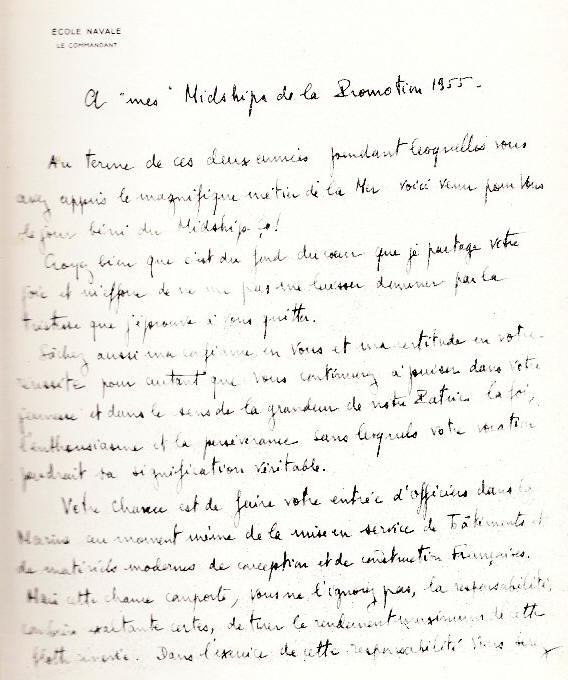 ECOLE NAVALE
LE COMMANDANT
A "mes" Midships de la Promotion 1955 -
Au terme de ces deux années pendant lesquelles vous
avez appris le magnifique métier de la Mer voici venu pour vous
le jour béni du Midship !
Croyez bien que c'est du fond du cœur que je partage votre
joie et m'efforce de ne pas me laisser dominer par la
tristesse que j'éprouve à vous quitter.
Sachez aussi ma confiance en vous et ma certitude en votre
réussite pour autant que vous continuiez à puiser dans votre
jeunesse et dans le sens de la grandeur de notre Patrie la foi,
l'enthousiasme et la persévérance sans lesquels votre vocation
perdrait sa signification véritable.
Votre chance est de faire votre entrée d'officiers dans la
Marine au moment même de la mise en service de Bâtiments et
de matériels modernes de conception et de construction Françaises.
Mais cette chance comporte, vous ne l'ignorez pas, la responsabilité,
combien exaltante certes, de tirer le rendement maximum de cette
flotte. Dans l'exercice de cette responsabilité vous